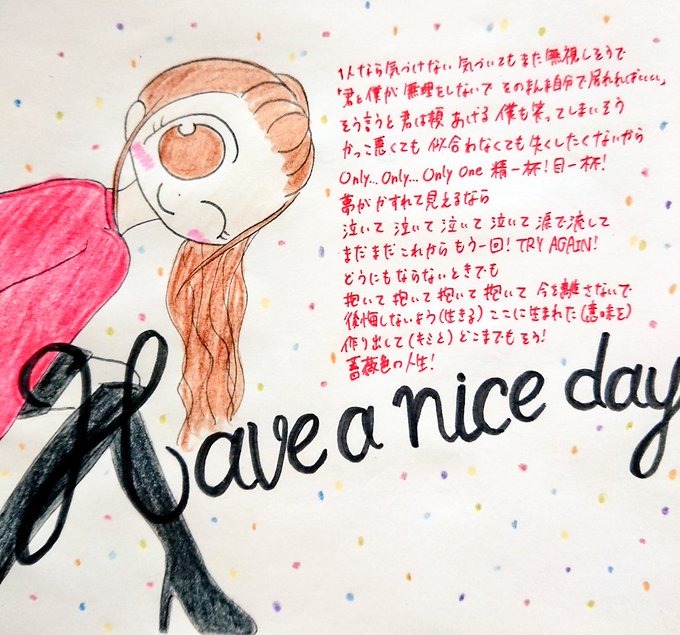 1人なら気づけない 気づいてもまた無視しそうで
「君と僕が無理をしないで そのまんま自分で居れればいい」
そう言うと君は頬あげる 僕も笑ってしまいそう
かっこ悪くても 似合わなくても 失くしたくないから
Only... Only... Only One 精一杯!目一杯!
夢がかすれて見えるなら
泣いて 泣いて 泣いて 泣いて 涙で流して
まだまだこれから もう一回! TRY AGAIN!
どうにもならないときでも
抱いて 抱いて 抱いて 抱いて 今を離さないで
後悔しないよう(生きる) ここに生まれた(意味を)
作り出して(キミと) どこまでもそう!
薔薇色の人生!
Have a nice day